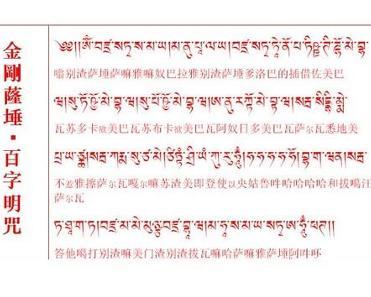 金剛薩埵·百字明咒
༄༅།།ཨོཾ་བཛྲ་སཏྭ་ས་མ་ཡ།མ་ནུ་པཱ་ལ་ཡ།བཛྲ་སཏྭ་ཏྭེ་ནོ་པ་ཏིཥྛ་དྲྀ་ཌྷོ་མེ་བྷ་
嗡别渣萨埵萨嘛雅嘛奴巴拉雅别渣萨埵爹洛巴的插借佐美巴
ཝ།སུ་ཏོ་ཥྱོ་མེ་བྷ་ཝ།སུ་པོ་ཥྱོ་མེ་བྷ་ཝ།ཨ་ནུ་རཀྟོ་མེ་བྷ་ཝ།སརྦ་སིདྡྷི་མྨེ་
瓦苏多卡欲美巴瓦苏布卡欲美巴瓦阿奴日多美巴瓦萨尔瓦悉地美
པྲ་ཡ་ཙྪ།སརྦ་ཀརྨ་སུ་ཙ་མེ།ཙིཏྟཾ་ཤྲི་ཡཾ་ཀུ་རུ་ཧཱུྃ།ཧ་ཧ་ཧ་ཧ་ཧོཿབྷ་ག་ཝན།སརྦ་
不差雅擦萨尔瓦嘎尔嘛苏渣美即登使以央姑鲁吽哈哈哈哈和拔噶汪萨尔瓦
ཏ་ཐཱ་ག་ཏ།བཛྲ་མ་མེ་མུཉྩ་བཛྲ་བྷ་ཝ་མ་ཧཱ་ས་མ་ཡ་སཏྭ་ཨཱཿཧཱུྃ་ཕཊ།།
答他噶打别渣嘛美门渣别渣拔瓦嘛哈萨嘛雅萨埵阿吽呸